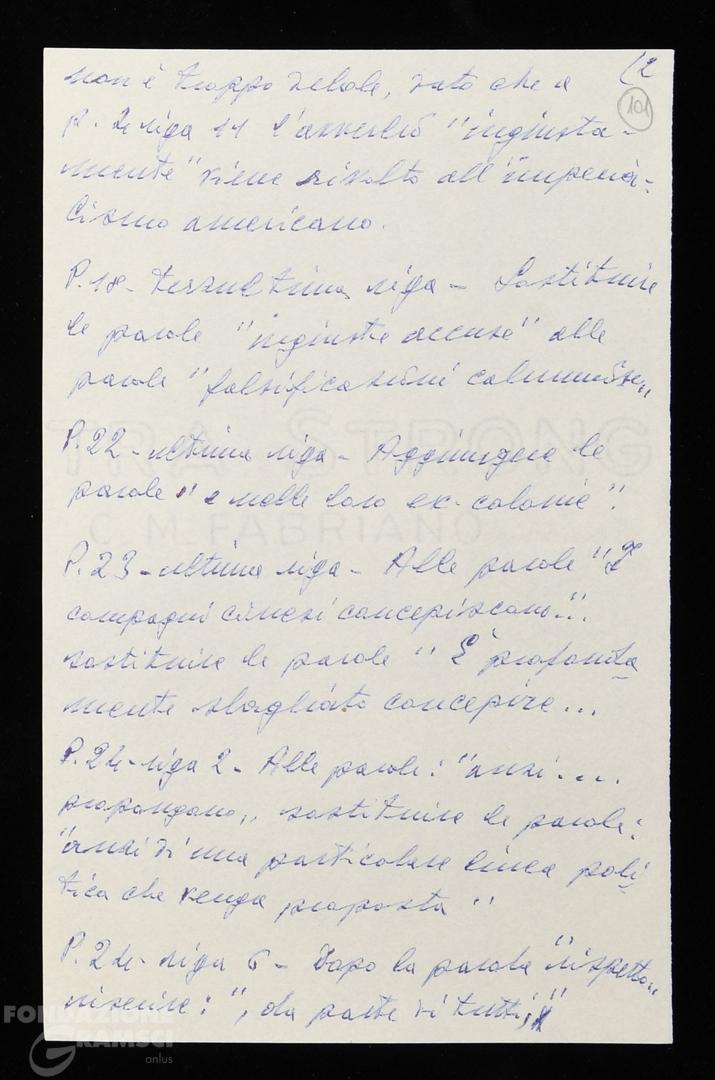 (2
101
non è troppo debole, dato che a
p. 2 riga 11 l'avverbio "ingiusta-
mente" viene rivolto all'"imperia-
lismo americano.
P. 18 - terzultima riga - Sostituire
le parole "ingiuste accuse" alle
parole "falsificazioni calunniose"
P. 22 - ultima riga - Aggiungere le
parole "e nelle loro ex-colonie".
P. 23 - ultima riga - Alle parole "I
compagni cinesi concepiscono..."
sostituire le parole "È profonda
mente sbagliato concepire...
P. 24 - riga 2 - Alle parole: "anzi....
propongano" sostituire le parole:
"anzi di una particolare linea poli
tica che venga proposta"
P. 24 - riga 6 - Dopo la parola "rispetto"
inserire: ", da parte di tutti,"
TRA STRONG
C.M. FABRIANO
FONDAZIONE
GRAMSCI
onlus